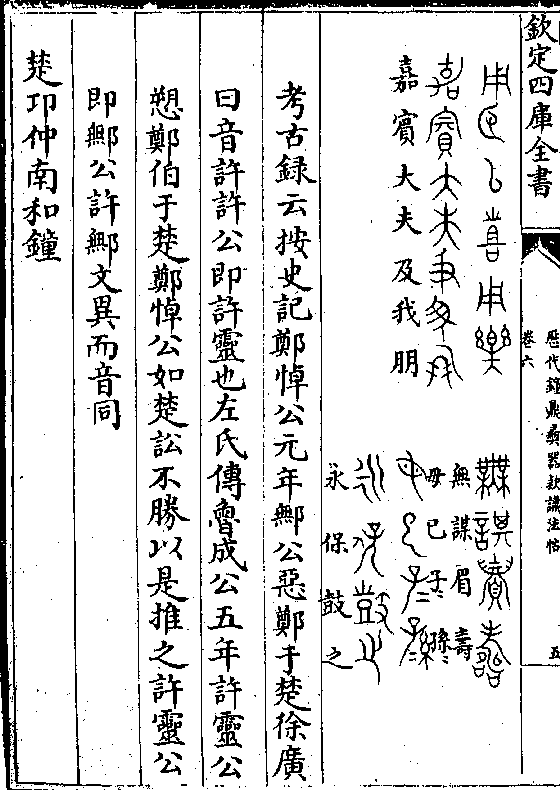 欽定四庫全書
歷代鐘鼎彝器款識法帖
卷六
五
嘉賓大夫及我朋
無諆眉壽
毋已子〻孫〻
永保鼓之
考古錄云按史記鄭悼公元年鄦公惡鄭于楚徐廣
曰音許許公即許靈也左氏傳魯成公五年許靈公
愬鄭伯于楚鄭悼公如楚訟不勝以是推之許靈公
即鄦公許鄦文異而音同
楚卭仲南和鐘